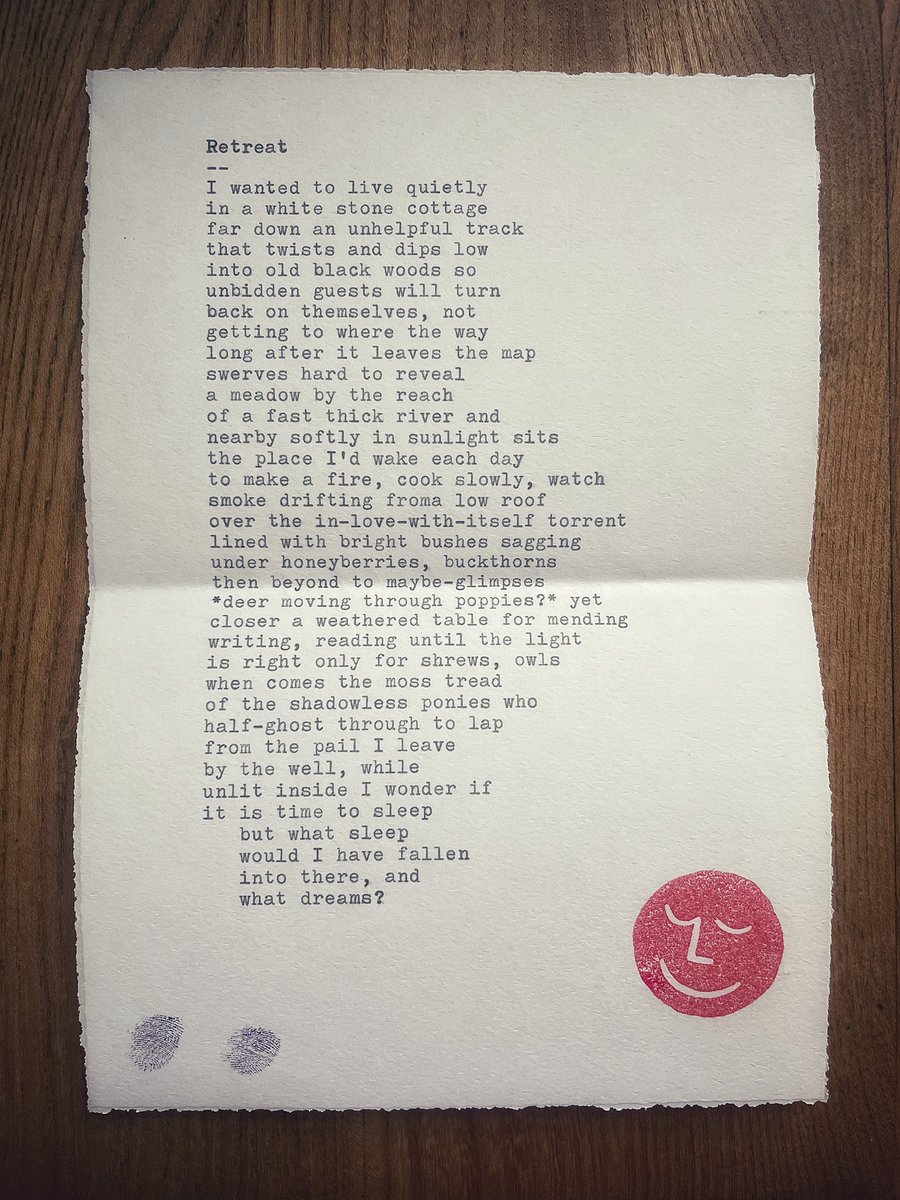 Retreat
--
I wanted to live quietly
in a white stone cottage
far down an unhelpful track
that twists and dips low
into old black woods so
unbidden guests will turn
back on themselves, not
getting to where the way
long after it leaves the map
swerves hard to reveal
a meadow by the reach
of a fast thick river and
nearby softly in sunlight sits
the place I'd wake each day
to make a fire, cook slowly, watch
smoke drifting froma low roof
over the in-love-with-itself torrent
lined with bright bushes sagging
under honeyberries, buckthorns
then beyond to maybe-glimpses
*deer moving through poppies?* yet
closer a weathered table for mending
writing, reading until the light
is right only for shrews, owls
when comes the moss tread
of the shadowless ponies who
half-ghost through to lap
from the pail I leave
by the well, while
unlit inside I wonder if
it is time to sleep
but what sleep
would I have fallen
into there, and
what dreams?